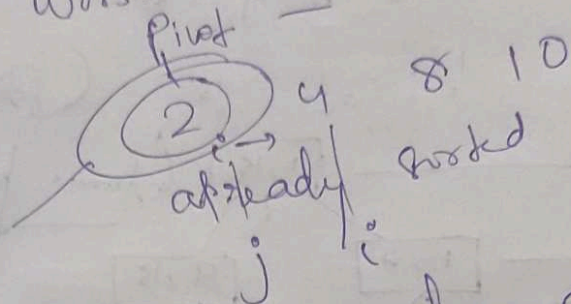 Pivot
2 4 8 10
i →
already sorted
j i